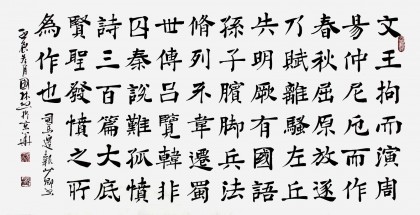 文王拘而演周
易仲尼厄而作
春秋屈原放逐
乃賦離騷左丘
失明厥有國語
孫子臏脚兵法
脩列不韋遷蜀
世傳呂覽韓非
囚秦說難孤憤
詩三百篇大底
賢聖發憤之所
為作也
司馬遷報